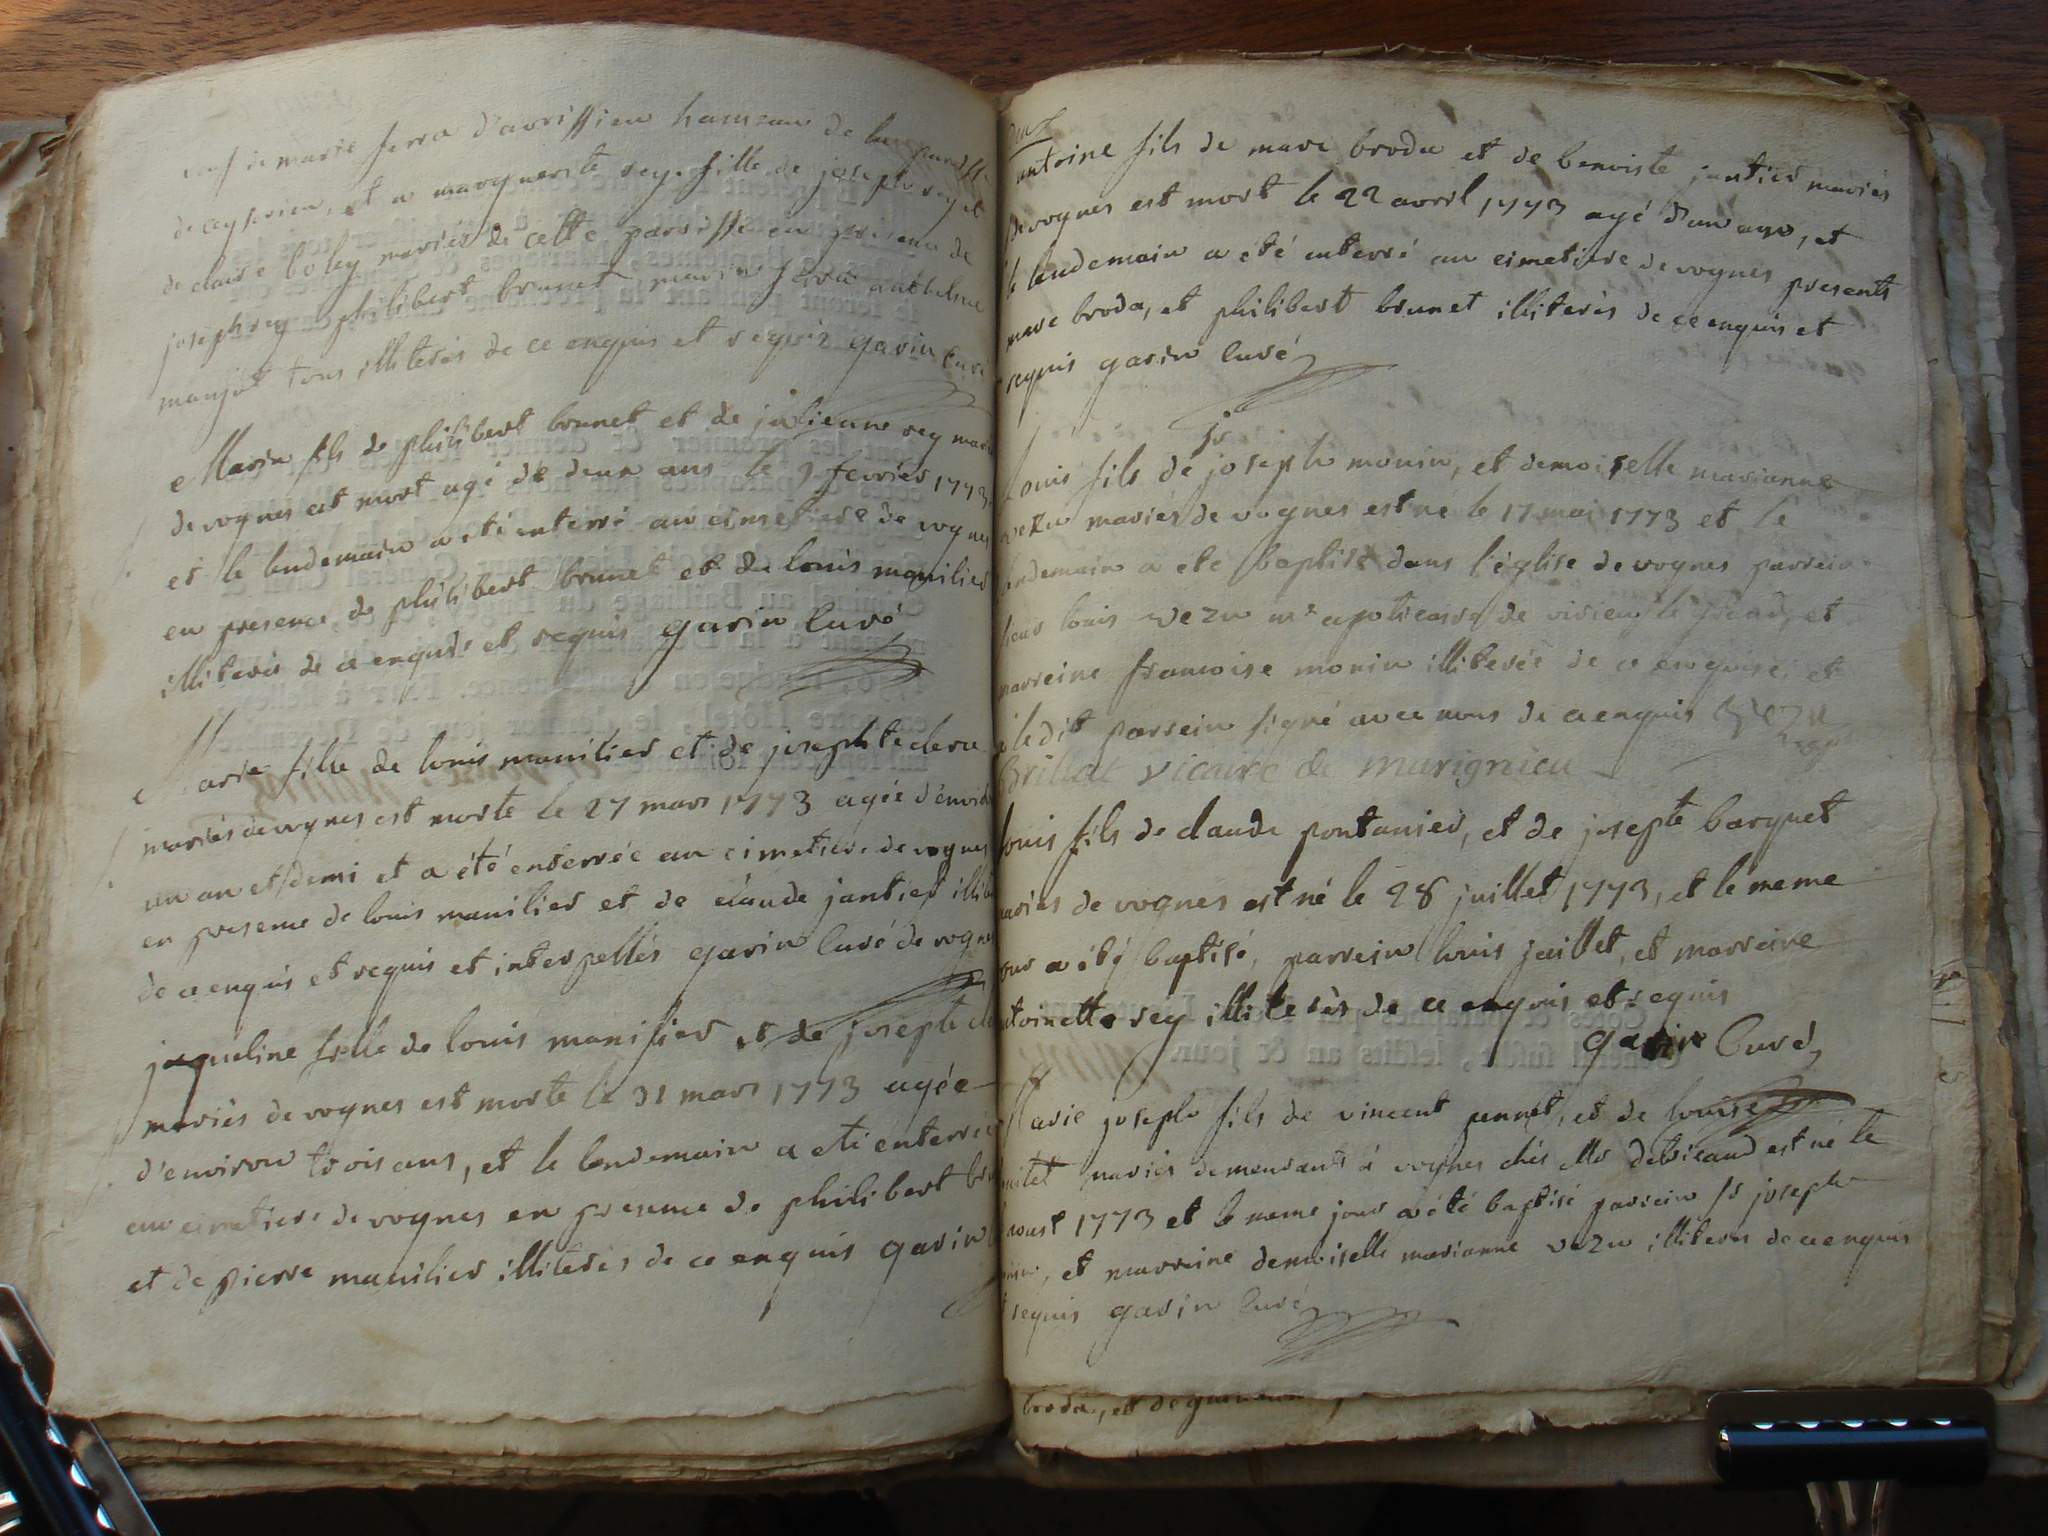 veuf de marie ferra d'avrissieu hameau de la paroisse
de ceyserieu, et a marguerite rey fille de joseph rey et
de claire boley mariés de cette paroisse en presence de
joseph rey philibert brunet marin ferra anthelme
manjot tous illiterés de ce enquis et requis gavin curé
Marin fils de philibert brunet et de julienne rey mariés
de vognes est mort agé de deux ans le 9 fevrier 1773
et le lendemain a été enterré au cimetiere de vognes
en presence de philibert brunet et de louis manilier
illiterés de ce enquis et requis gavin curé
Marie fille de louis manilier et de josephte
mariés de vognes est morte le 27 mars 1773 agée d'environ
un an et demi et a été enterrée au cimetiere de vognes
en presence de louis manilier et de claude jantier
de ce enquis et requis et interpellés gavin curé de vognes
jaqueline fille de louis manilier et de josephte
mariés de vognes est morte le 31 mars 1773 agée
d'environ trois ans, et le lendemain a été enterrée
au cimetiere de vognes en presence de philibert
et de pierre manilier illiterés de ce enquis gavin
deux
antoine fils de marc broda et de benoiste jantier mariés
de vognes est mort le 22 avril 1773 agé d'un an, et
le lendemain a été enterré au cimetiere de vognes presents
marc broda, et philibert brunet illiterés de ce enquis et
requis gavin curé
sr
Louis fils de joseph monin, et demoiselle marianne
vezu mariés de vognes est né le 17 mai 1773 et le
lendemain a été baptisé dans l'église de vognes parrein
sieur louis vezu mr apoticaire de virieu le grand, et
marreine francoise monin illiterée de ce enquise, et
le dit parrein signé avec nous de ce enquis vezu
Brillat vicaire de marignieu
louis fils de claude pontanier, et de josephte barquet
mariés de vognes est né le 28 juillet 1773, et le meme
jour a été baptisé, parrein louis jaillet, et marreine
antoinette rey illiterés de ce enquis et requis
gavin Curé
Marie joseph fils de vincent pennet, et de louise
mariés demeurants à vognes chés Mr est né le
aoust 1773 et le meme jour a été baptisé parrein sr joseph
monin, et marreine demoiselle marianne vezu illiterés de ce enquis
et requis gavin curé
broda, et de